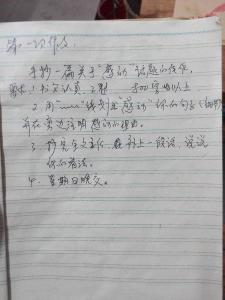 第一次作文
手抄一篇关于“感动”话题的作文,
要求:1.书写认真、工整 500字以上
2.用“﹏﹏”线划出“感动”你的句子(
并在旁边注明感动的理由。
3.抄完全文之后,在补上一段话,说说
你的看法。
4.星期日晚交。